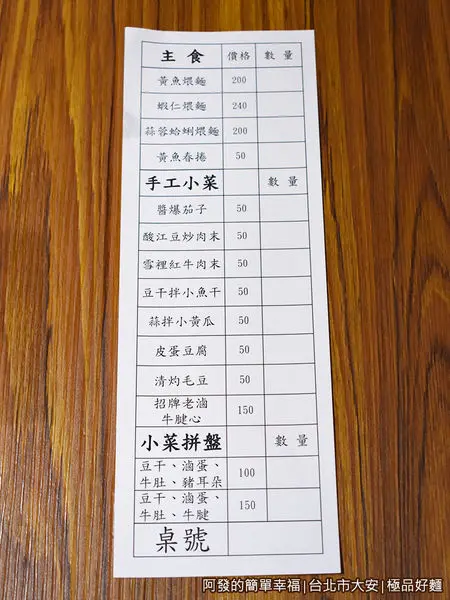 主食 價格 數量
黃魚煨麵 200
蝦仁煨麵 240
蒜蓉蛤蜊煨麵 200
黃魚春捲 50
手工小菜 數量
醬爆茄子 50
酸江豆炒肉末 50
雪裡紅牛肉末 50
豆干拌小魚干 50
蒜拌小黃瓜 50
皮蛋豆腐 50
清灼毛豆 50
招牌老滷
牛腱心 150
小菜拼盤 數量
豆干、滷蛋、
牛肚、豬耳朵 100
豆干、滷蛋、
牛肚、牛腱 150
桌號
阿發的簡單幸福|台北市大安|極品好麵